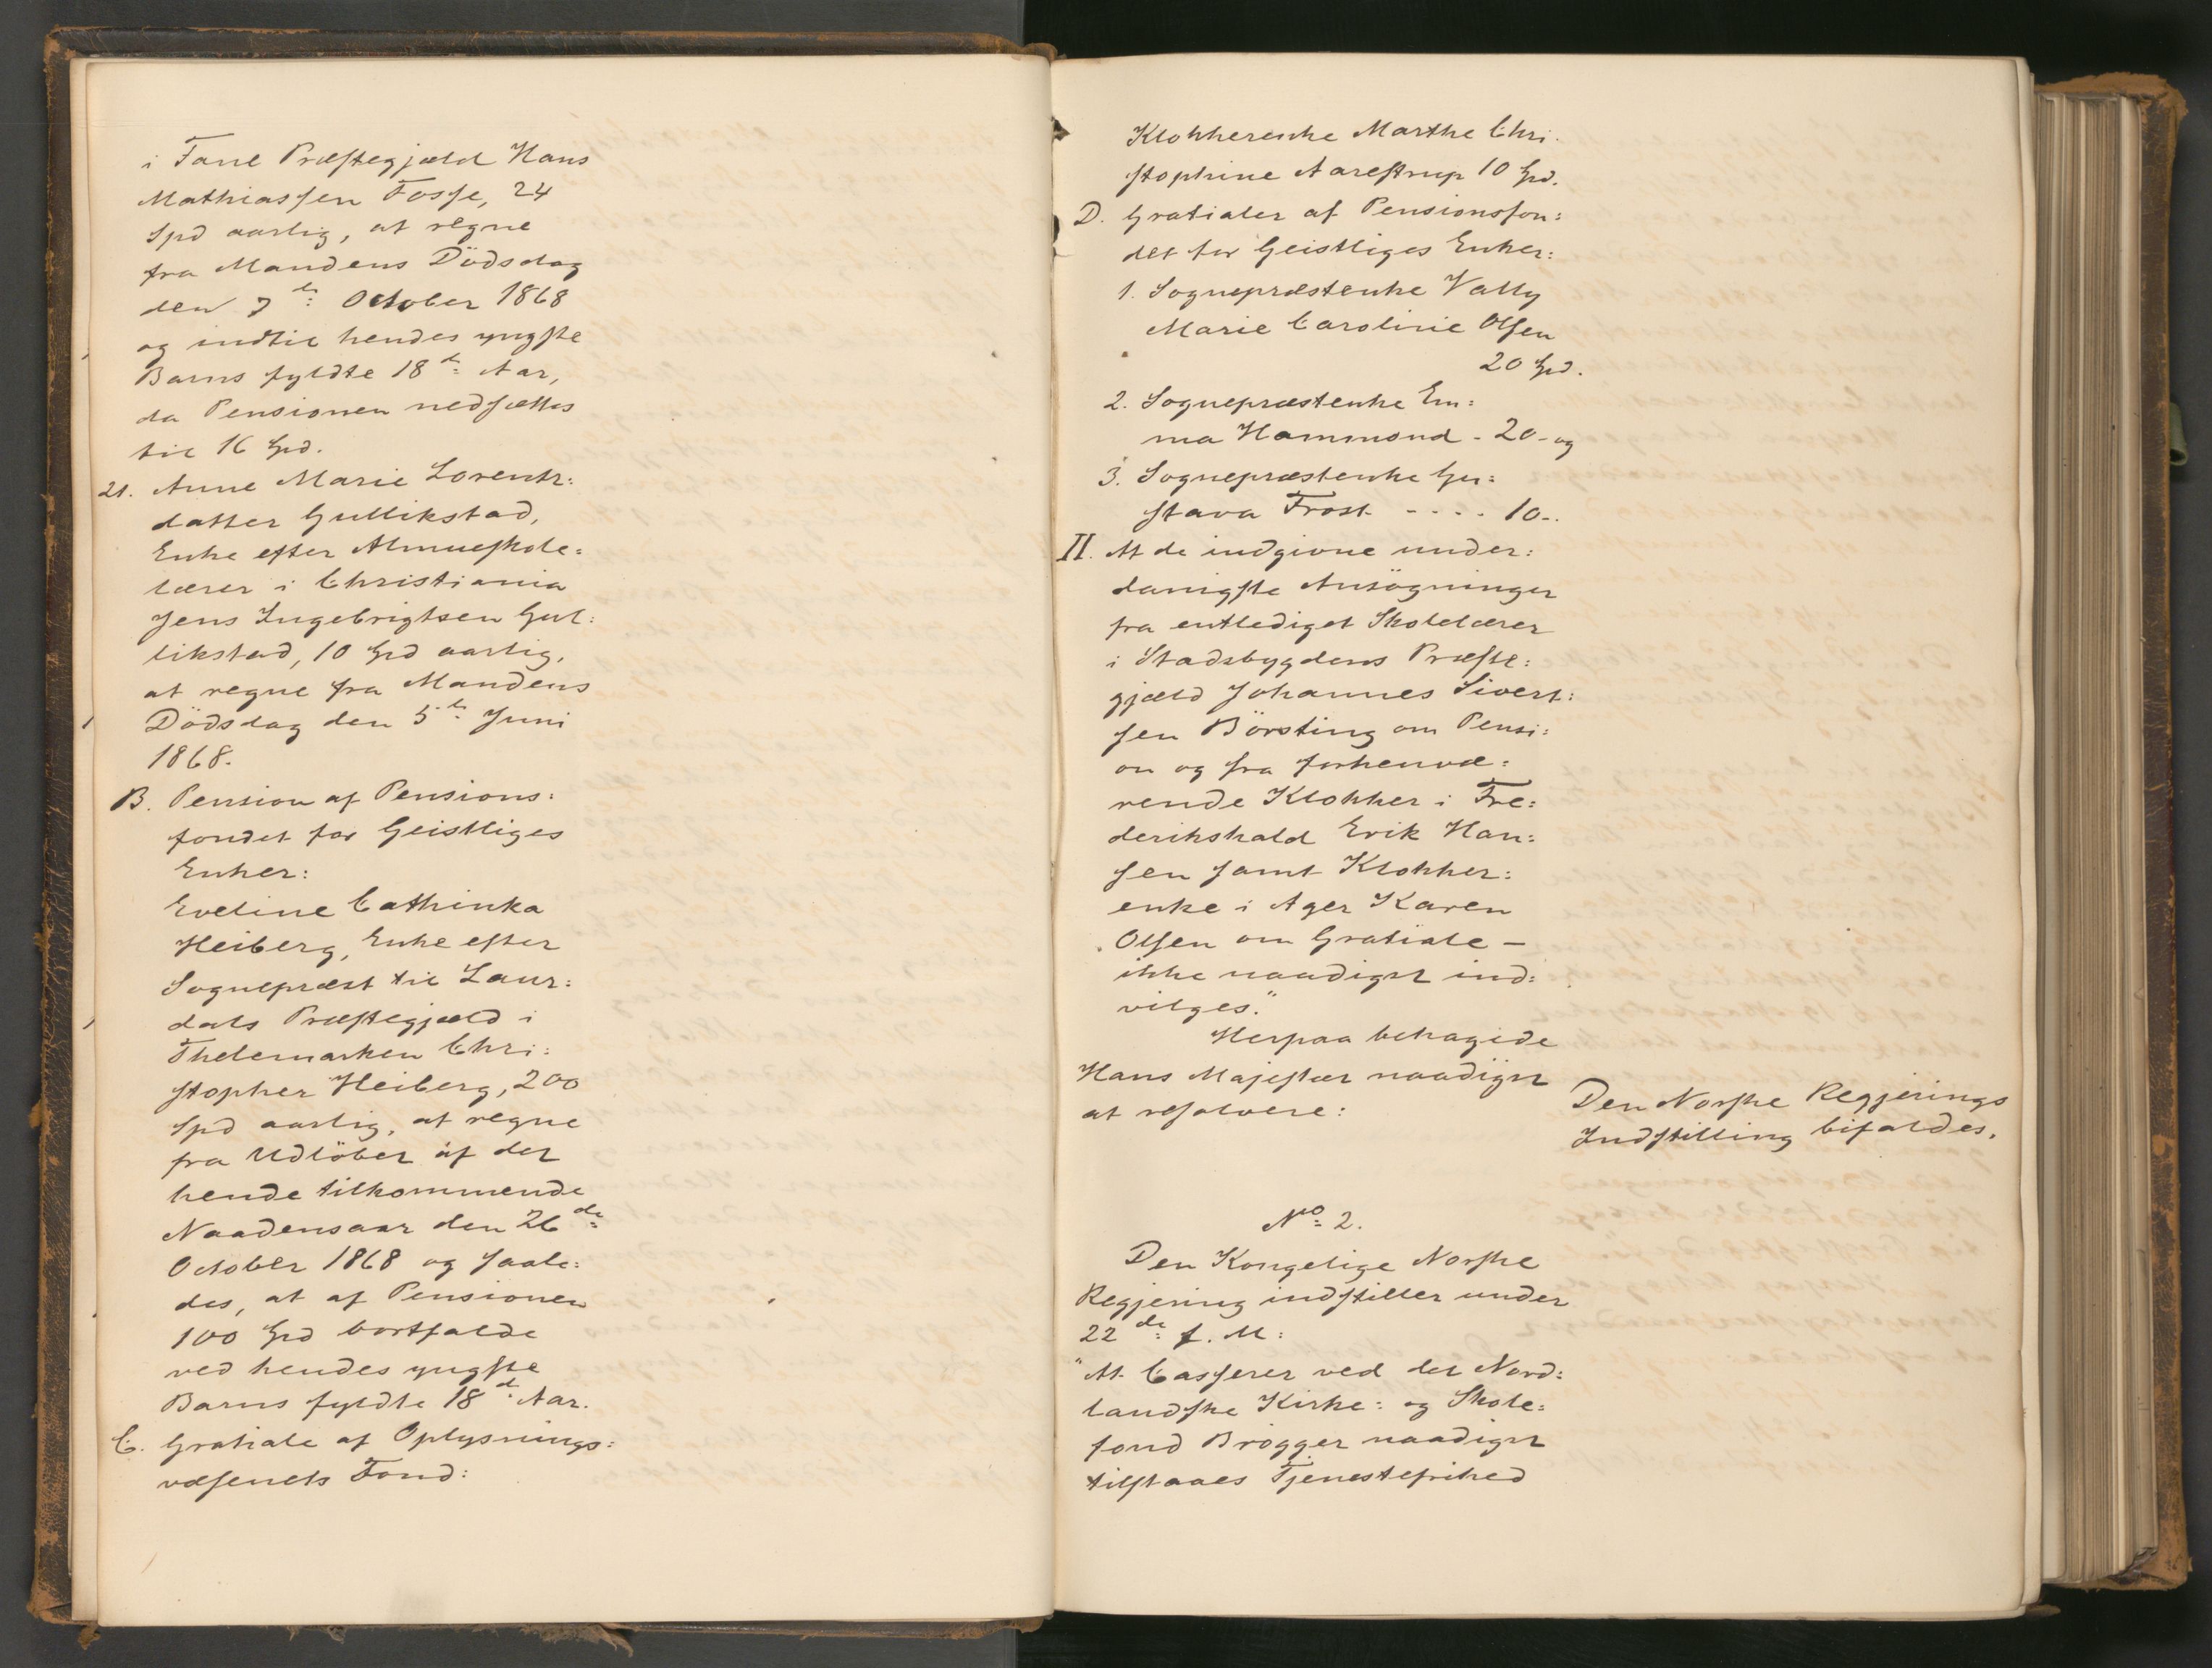 i Fane Præstegjæld Hans
Mathiassen Fosse, 24
Spd aarlig, at regne
fra Mandens Dödsdag
den 7de October 1868
og indtil hendes yngste
Barns fyldte 18de Aar,
da Pensionen nedsættes
til 16 Spd.
21. Anne Marie Lorents:
datter Gullikstad,
Enke efter Almueskole:
lærer i Christiania
Jens Ingebrigtsen Gul:
likstad, 10 Spd aarlig,
at regne fra Mandens
Dödsdag den 5te Juni
1868.
B. Pension af Pensions:
fondet for Geistliges
Enker:
Eveline Cathinka
Heiberg, Enke efter
Sognepræst til Laur:
dals Præstegjæld i
Thelemarken Chri:
stopher Heiberg, 200
Spd aarlig, at regne
fra Udlöbet af det
hende tilkommende
Naadensaar den 26de
October 1868 og saale:
des, at af Pensionen
100 Spd bortfalde
ved hendes yngste
Barns fyldte 18de Aar.
C. Gratiale af Oplysnings:
væsenets Fond:
Klokkerenke Marthe Chri:
stophine Aarestrup 10 Spd.
D. Gratialer af Pensionsfon:
det for Geistliges Enker:
1. Sognepræstenke Vally
Marie Caroline Olsen
20 Spd.
2. Sognepræstenke Em:
ma Hammond - 20 - og
3. Sognepræstenke Gu:
stava Frost - - - - 10 -.
II. At de indgivne under:
danigste Ansögninger
fra entlediget Skolelærer
i Stadsbygdens Præste:
gjæld Johannes Sivert:
sen Börsting om Pensi:
on og fra forhenvæ:
rende Klokker i Fre:
derikshald Erik Han:
sen samt Klokker:
enke i Ager Karen
Olsen om Gratiale —
ikke naadigst ind:
vilges."
Herpaa behagede
Hans Majestæt naadigst
at resolvere:
Den Norske Regjerings
Indstilling bifaldes.
No 2.
Den Kongelige Norske
Regjering indstiller under
22de f. M:
"At Casserer ved det Nord:
landske Kirke: og Skole:
fond Brögger naadigst
tilstaaes Tjenestefrihed